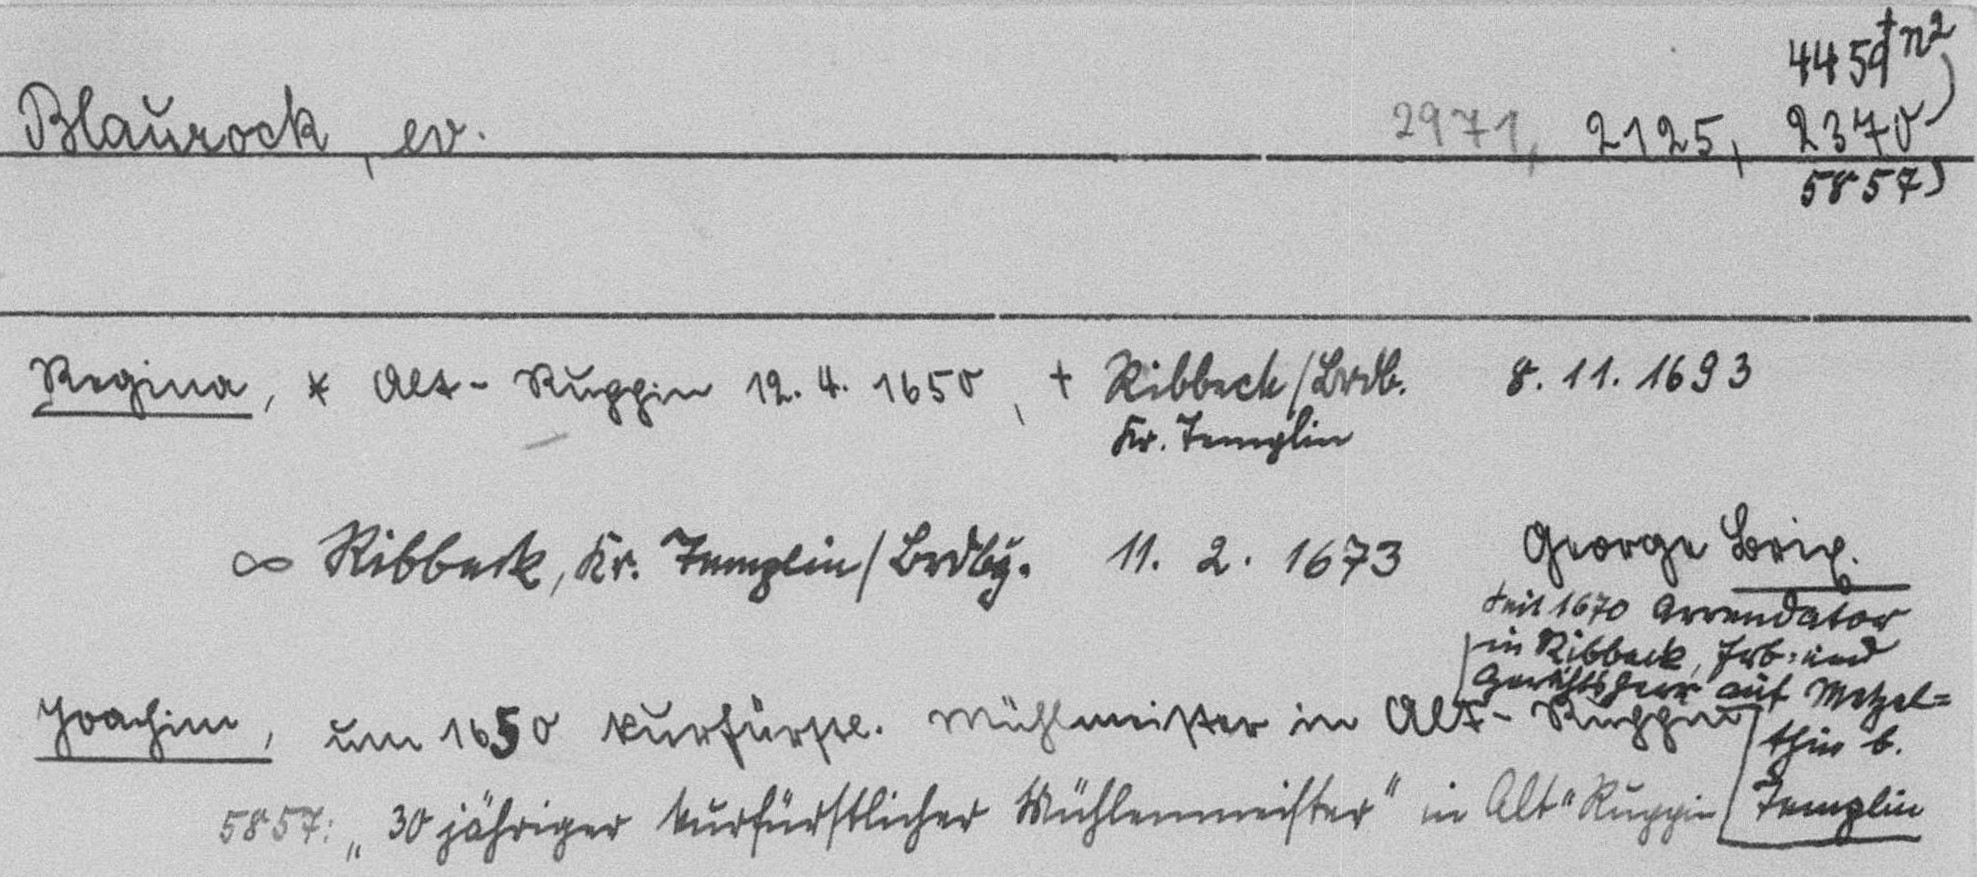 4459 + n2
Blaurock, ev. 2971, 2125, 2370
5857
Regina, * Alt-Ruppin 12. 4. 1650, + Ribbeck/Brdb. 8. 11. 1693
Kr. Templin
∞ Ribbeck, Kr. Templin/Brdbg. 11. 2. 1673 George
seit 1670 Arrendator
in Ribbeck, Erb- und
Gerichtsherr auf Metzel=
thin b.
Templin
Joachim, um 1650 kurfürstl. Mühlmeister in Alt-Ruppin
5857: „30jähriger kurfürstlicher Mühlenmeister" in Alt-Ruppin